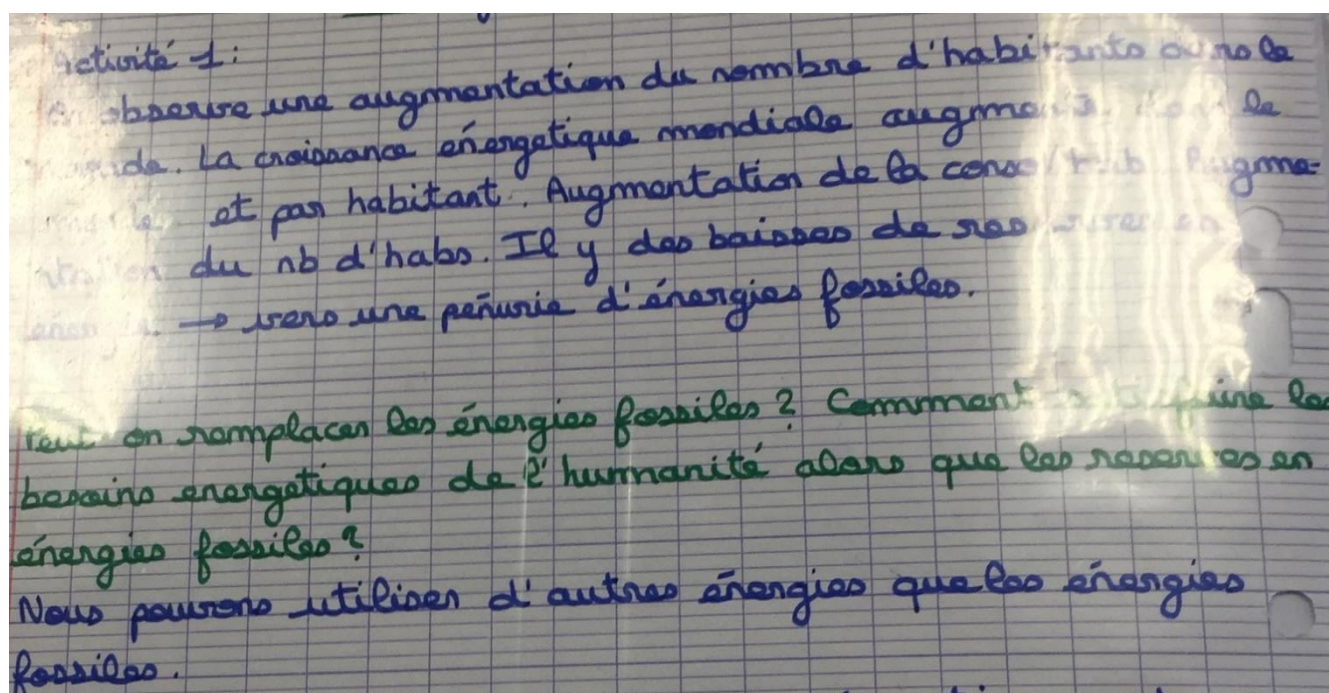 Activité 1:
observe une augmentation du nombre d'habitants
La croissance énergetique mondiale le
et par habitant. Augmentation de la
du nb d'habs. Il y des baisses de
→ vers une pénurie d'énergies fossiles.
Peut on remplacer les énergies fossiles ? Comment les
besoins energetiques de l'humanité alors que les reserves en
énergies fossiles ?
Nous pouvons utiliser d'autres énergies que les énergies
fossiles.